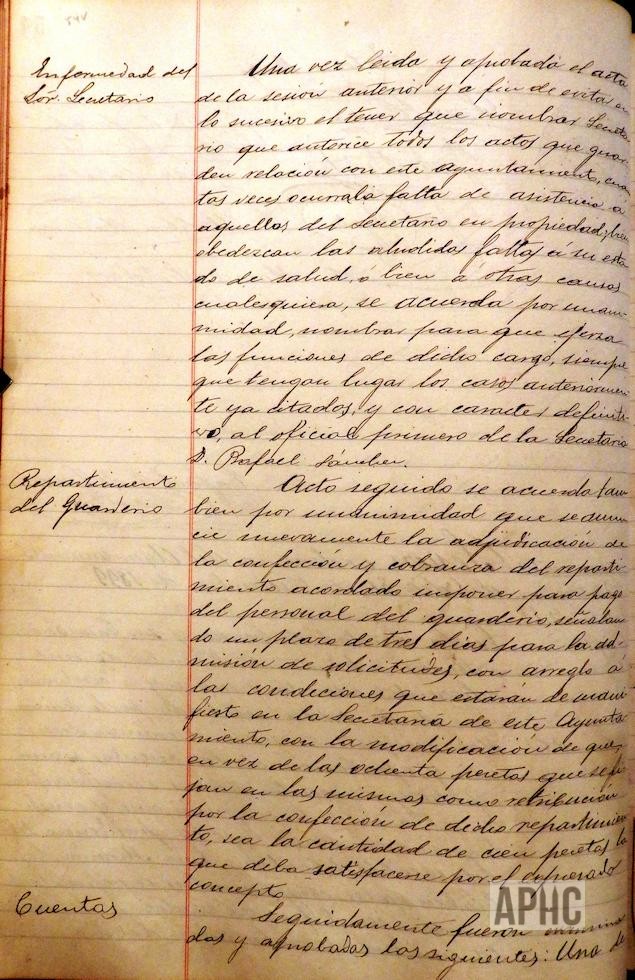 Enfermedad del
Sor. Secretario
Una vez leida y aprobada el acta
de la sesión anterior y a fin de evitar en
lo sucesivo el tener que nombrar Secreta
rio que autorice todos los actos que guar
den relación con este Ayuntamiento, cuan
tas veces ocurra la falta de asistencia a
aquellos del Secretario en propiedad, bien
obedezcan las aludidas faltas á su esta
do de salud, ó bien a otras causas
cualesquiera, se acuerda por unani
midad, nombrar para que ejerza
las funciones de dicho cargo, siempre
que tengan lugar los casos anteriormen
te ya citados, y con caracter definiti
vo, al oficial primero de la Secretaria
D. Rafael Sánchez.
Repartimiento
del Guarderio
Acto seguido se acuerda tam
bien por unanimidad que se anun
cie nuevamente la adjudicación de
la confección y cobranza del reparti
miento acordado imponer para pago
del personal del guarderio, señalan
do un plazo de tres dias para la ad
misión de solicitudes, con arreglo á
las condiciones que estarán de mani
fiesto en la Secretaria de este Ayunta
miento, con la modificación de que,
en vez de las ochenta pesetas que se fi
jan en las mismas como retribución
por la confección de dicho repartimien
to, sea la cantidad de cien pesetas la
que deba satisfacerse por el expresado
concepto.
Cuentas
Seguidamente fueron examina
das y aprobadas las siguientes: Una de
APHC